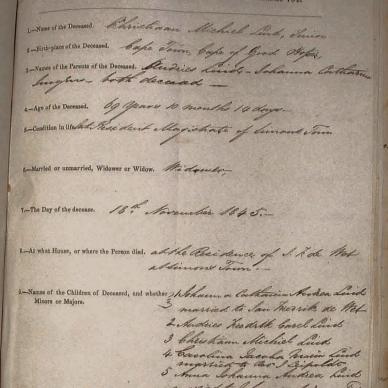 1.—Name of the Deceased. Christiaan Michiel Lind, Senior
2.—Birth-place of the Deceased. Cape Town, Cape of Good Hope
3.—Names of the Parents of the Deceased. Andries Lind & Johanna Catharina
both deceased —
4.—Age of the Deceased. 69 years 10 months 14 days
5.—Condition in life. Resident Magistrate of Simons Town
6.—Married or unmarried, Widower or Widow. Widower
7.—The Day of the decease. 18th November 1845.—
8.—At what House, or where the Person died. at the Residence of J. F. de Wet
at Simons Town —
9.—Names of the Children of Deceased, and whether 1 Johanna Catharina Andrea Lind
Minors or Majors. married to Jan Herrik de Wet
2 Andries Fredrik Carel Lind
3 Christiaan Michiel Lind
4 Carolina Jacoba Maria Lind
married to Leipoldt
5 Anna Johanna Andrea Lind